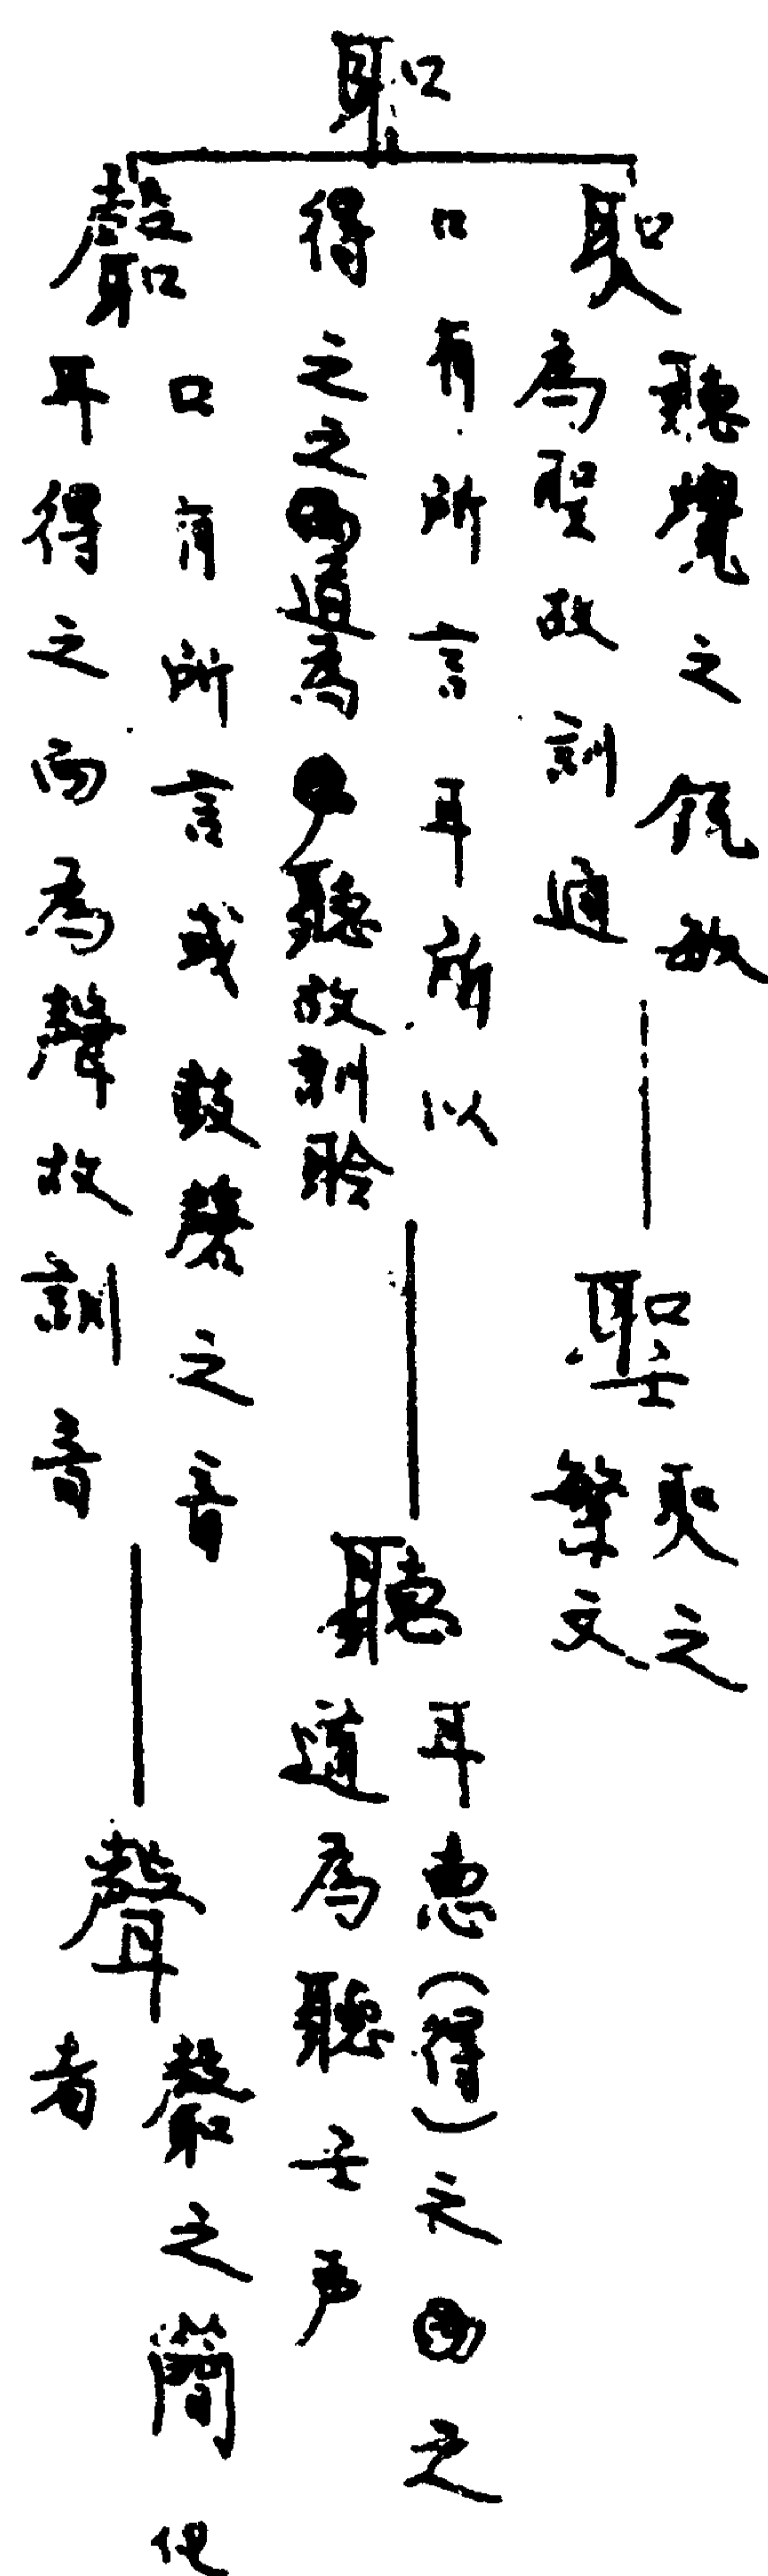 聑口
𦔻
聽覺之銳敏
為聖故訓通
聖
𦔻之
繁文
口有所言耳所以
得之之道為聽故訓聆
聽
耳悳（得）之之
道為聽壬声
殸
口有所言或鼓磬之音
耳得之而為聲故訓音
聲
之簡化
者